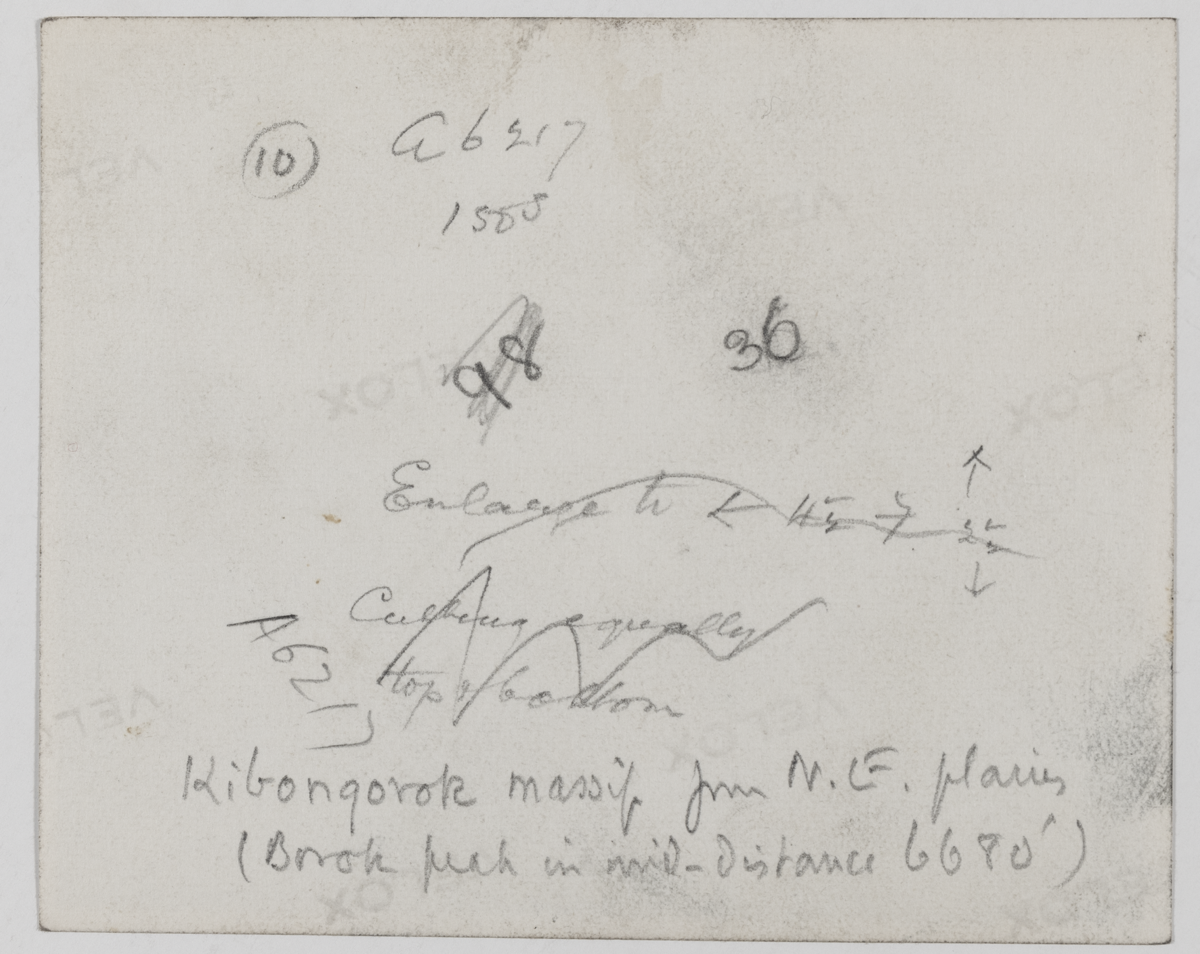 10
A6217
98
36
Enlarge to < 4½ > 
Cutting equally
top & bottom
A6217
Kibongorok massif from N.E. plains
(Borok peak in mid-distance 6680')
VELOX